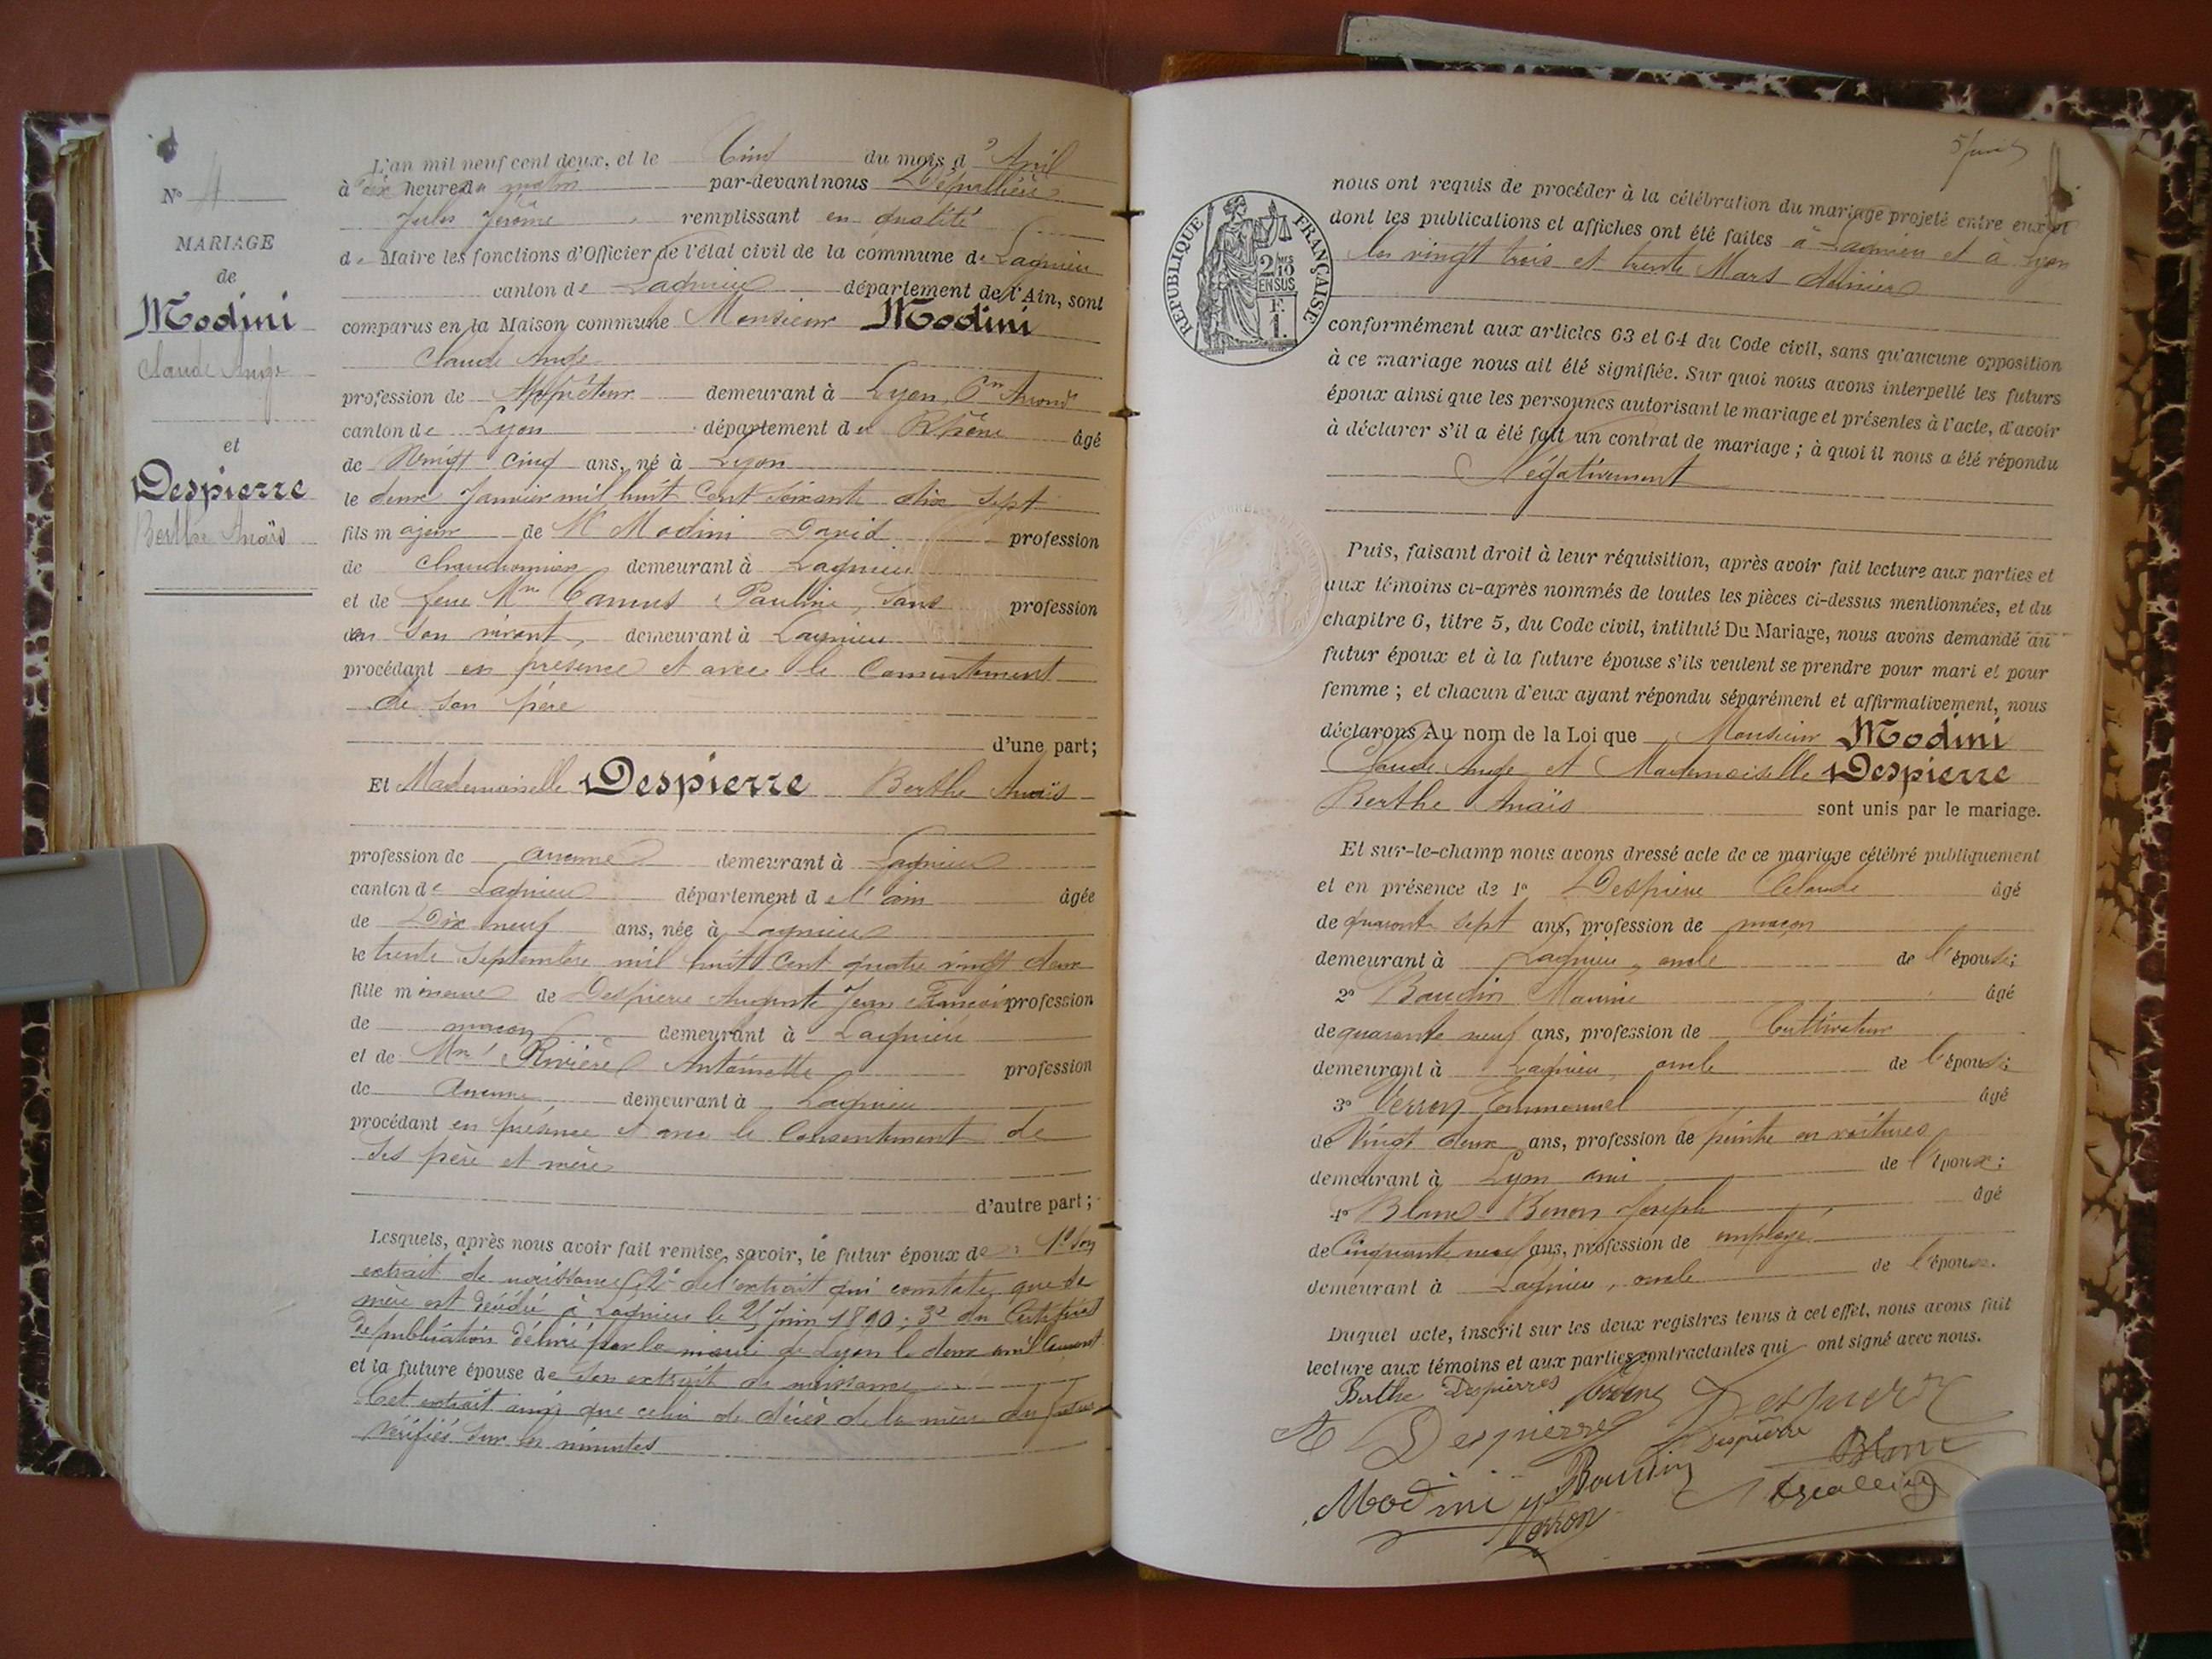 L'an mil neuf cent deux, et le Cinq du mois d'Avril
à dix heures du matin par-devant nous
Jules Jérôme remplissant en qualité
de Maire les fonctions d'Officier de l'état civil de la commune de Lagnieu
canton de Lagnieu département de l'Ain, sont
comparus en la Maison commune Monsieur Modini
Claude Ange
profession de demeurant à Lyon, Arrond
canton de Lyon département du Rhône âgé
de Vingt cinq ans, né à Lyon
le deux Janvier mil huit cent soixante dix sept
fils majeur de Mr Modini David profession
de demeurant à Lagnieu
et de feue Mme Camus Pauline, sans profession
en son vivant, demeurant à Lagnieu
procédant en présence et avec le Consentement
de son père
d'une part;
Et Mademoiselle Despierre Berthe Anaïs
profession de aucune demeurant à Lagnieu
canton de Lagnieu département de l'ain âgée
de Dix neuf ans, née à Lagnieu
le trente Septembre mil huit Cent quatre vingt deux
fille mineure de Despierre Auguste Jean François profession
de maçon demeurant à Lagnieu
et de Mme Rivière Antoinette profession
de Aucune demeurant à Lagnieu
procédant en présence et avec le Consentement de
ses père et mère
d'autre part;
Lesquels, après nous avoir fait remise, savoir, le futur époux de : 1° son
extrait de naissance, 2° de l'extrait qui constate que sa
mère est décédée à Lagnieu le Juin 1890; 3° du Certificat
de publication délivré par la mairie de Lyon le deux avril Courant
et la future épouse de son extrait de naissance
Cet extrait ainsi que celui de décès de la mère du futur
vérifiés sur les minutes
N° 4
MARIAGE
de
Modini
Claude Ange
et
Despierre
Berthe Anaïs
5 avril
RÉPUBLIQUE FRANÇAISE
2/10
EN SUS
F.
1.
nous ont requis de procéder à la célébration du mariage projeté entre eux et
dont les publications et affiches ont été faites à Lagnieu et à Lyon
les vingt trois et trente Mars dernier
conformément aux articles 63 et 64 du Code civil, sans qu'aucune opposition
à ce mariage nous ait été signifiée. Sur quoi nous avons interpellé les futurs
époux ainsi que les personnes autorisant le mariage et présentes à l'acte, d'avoir
à déclarer s'il a été fait un contrat de mariage; à quoi il nous a été répondu
Négativement
Puis, faisant droit à leur réquisition, après avoir fait lecture aux parties et
aux témoins ci-après nommés de toutes les pièces ci-dessus mentionnées, et du
chapitre 6, titre 5, du Code civil, intitulé Du Mariage, nous avons demandé au
futur époux et à la future épouse s'ils veulent se prendre pour mari et pour
femme; et chacun d'eux ayant répondu séparément et affirmativement, nous
déclarons Au nom de la Loi que Monsieur Modini
Claude Ange et Mademoiselle Despierre
Berthe Anaïs sont unis par le mariage.
Et sur-le-champ nous avons dressé acte de ce mariage célébré publiquement
et en présence de 1° Despierre Claude âgé
de quarante sept ans, profession de maçon
demeurant à Lagnieu, oncle de l'épouse;
2° Baudin Marius âgé
de quarante neuf ans, profession de Cultivateur
demeurant à Lagnieu, oncle de l'épouse;
3° Verron Emmanuel âgé
de Vingt deux ans, profession de peintre en voitures
demeurant à Lyon ami de l'époux;
4° Blanc Benon Joseph âgé
de Cinquante neuf ans, profession de employé
demeurant à Lagnieu, oncle de l'époux.
Duquel acte, inscrit sur les deux registres tenus à cet effet, nous avons fait
lecture aux témoins et aux parties contractantes qui ont signé avec nous.
Berthe Despierres
Despierre
Despierre
Blanc
Modini
Baudin
Verron